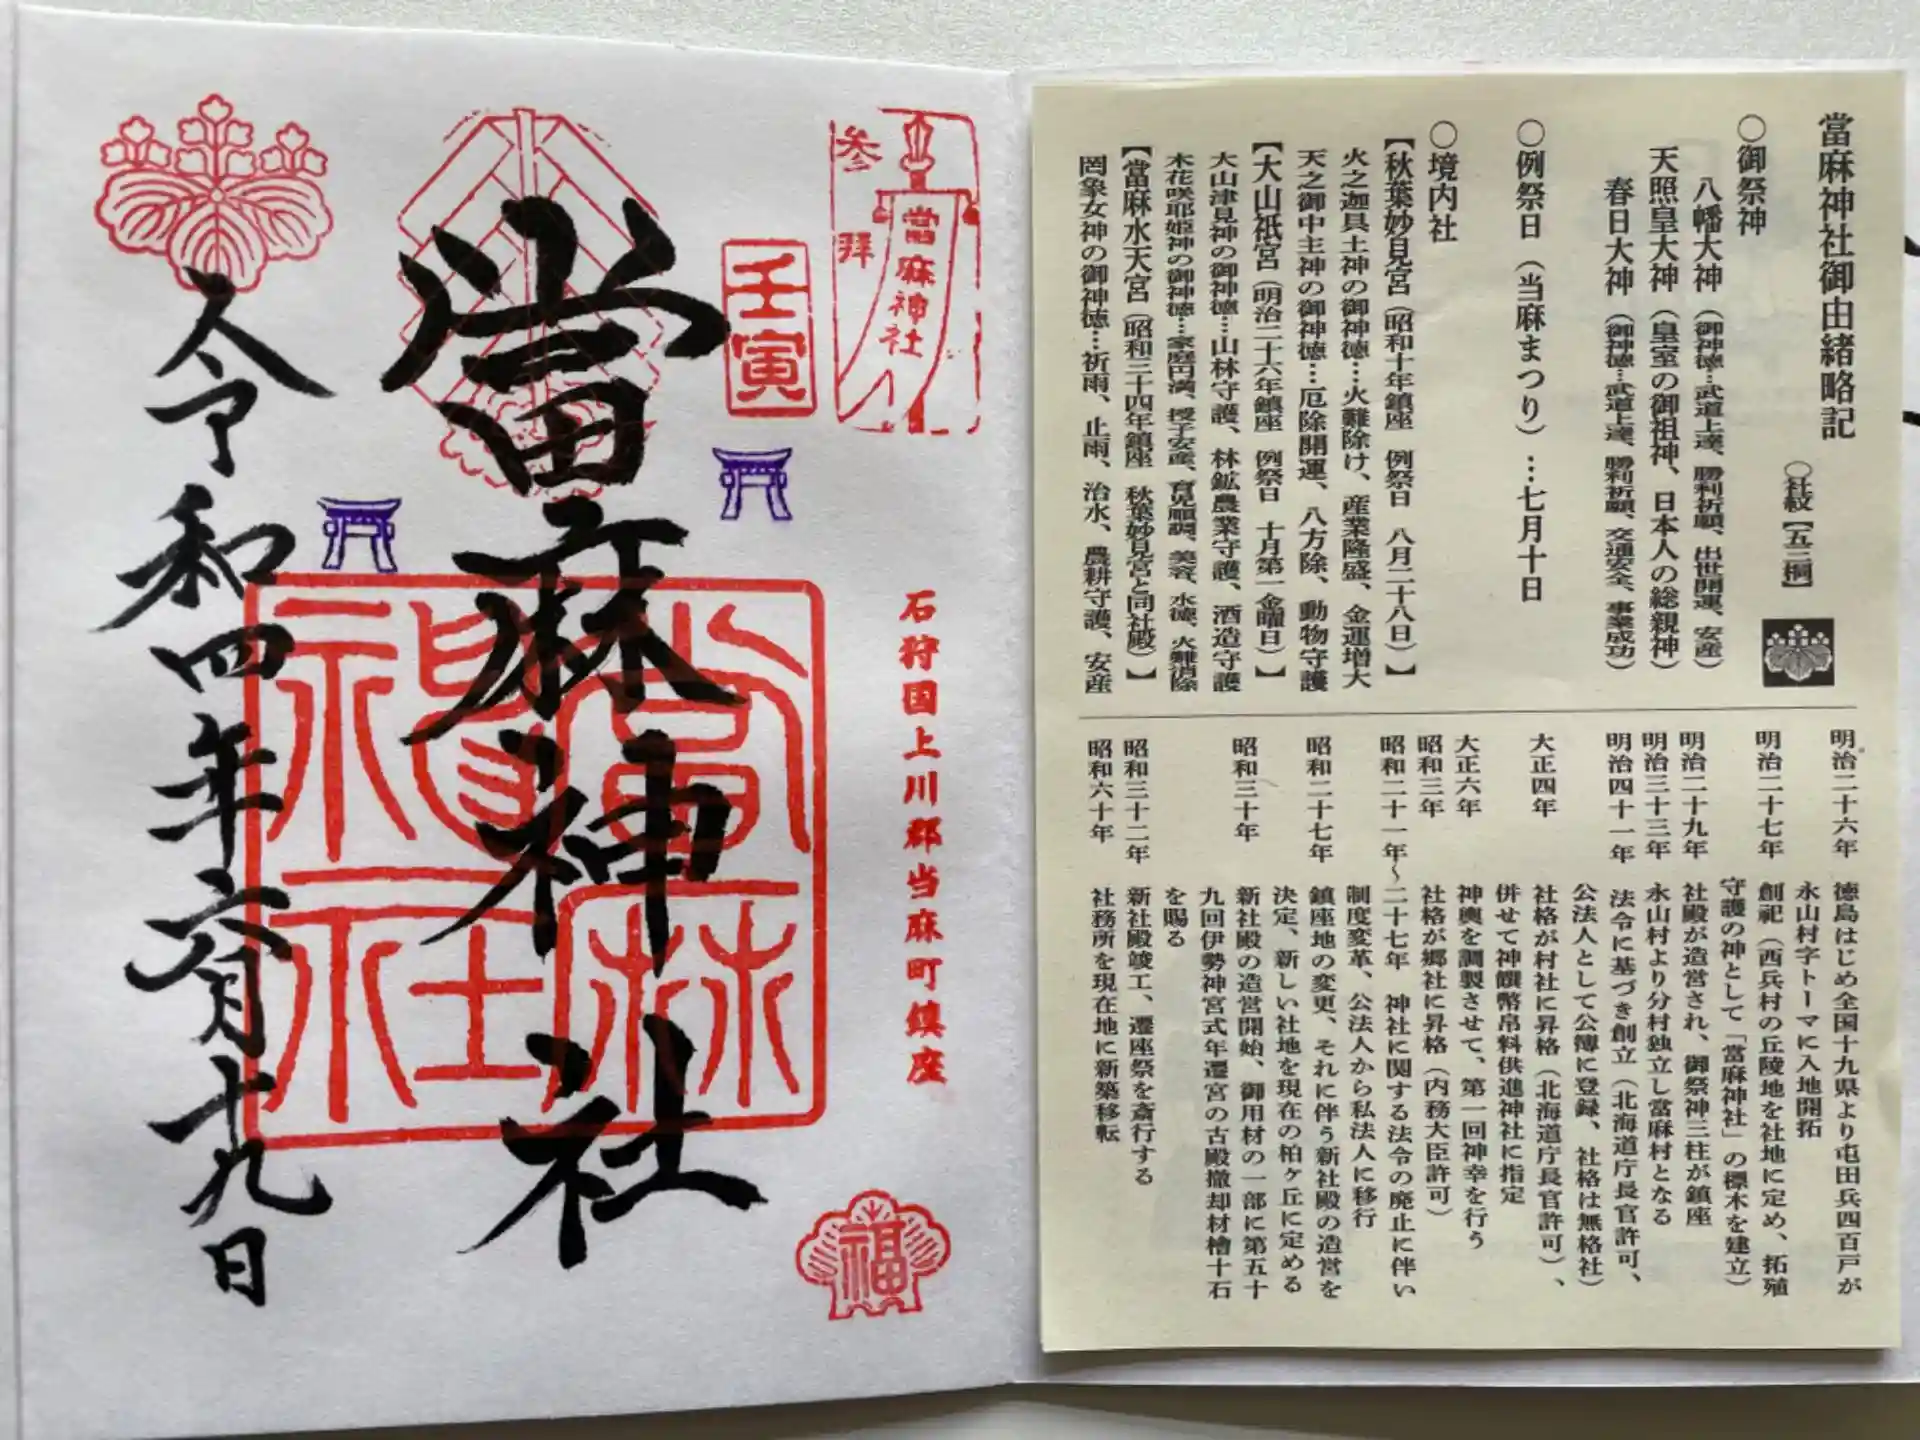 參拜
當麻神社
壬寅
當麻神社
石狩国上川郡当麻町鎮座
令和四年六月十九日
當麻神社
福
當麻神社御由緒略記
〇社紋【五三桐】
〇御祭神
八幡大神（御神徳…武道上達、勝利祈願、出世開運、安産）
天照皇大神（皇室の御祖神、日本人の総親神）
春日大神（御神徳…武道上達、勝利祈願、交通安全、事業成功）
〇例祭日（当麻まつり）…七月十日
〇境内社
【秋葉妙見宮（昭和十年鎮座 例祭日 八月二十八日）】
火之迦具土神の御神徳…火難除け、産業隆盛、金運増大
天之御中主神の御神徳…厄除開運、八方除、動物守護
【大山祇宮（明治二十六年鎮座 例祭日 十月第一金曜日）】
大山津見神の御神徳…山林守護、林鉱農業守護、酒造守護
木花咲耶姫神の御神徳…家庭円満、授子安産、育児順調、美容、水徳、火難消除
【當麻水天宮（昭和三十四年鎮座 秋葉妙見宮と同社殿）】
罔象女神の御神徳…祈雨、止雨、治水、農耕守護、安産
明治二十六年 徳島はじめ全国十九県より屯田兵四百戸が
永山村字トーマに入地開拓
明治二十七年 創祀（西兵村の丘陵地を社地に定め、拓殖
守護の神として「當麻神社」の標木を建立）
明治二十九年 社殿が造営され、御祭神三柱が鎮座
明治三十三年 永山村より分村独立し當麻村となる
明治四十一年 法令に基づき創立（北海道庁長官許可、
公法人として公簿に登録、社格は無格社）
大正四年 社格が村社に昇格（北海道庁長官許可）、
併せて神饌幣帛料供進神社に指定
大正六年 神輿を調製させて、第一回神幸を行う
昭和三年 社格が郷社に昇格（内務大臣許可）
昭和二十一年～二十七年 神社に関する法令の廃止に伴い
制度変革、公法人から私法人に移行
昭和二十七年 鎮座地の変更、それに伴う新社殿の造営を
決定、新しい社地を現在の柏ヶ丘に定める
昭和三十年 新社殿の造営開始、御用材の一部に第五十
九回伊勢神宮式年遷宮の古殿撤却材檜十石
を賜る
昭和三十二年 新社殿竣工、遷座祭を斎行する
昭和六十年 社務所を現在地に新築移転